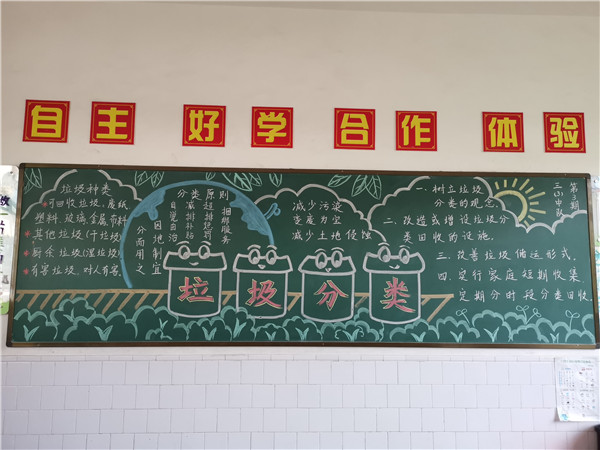 自主 好学 合作 体验
垃圾种类
可回收垃圾、废纸
塑料、玻璃、金属、布料
其他垃圾（干垃圾）
厨余垃圾（湿垃圾）
有害垃圾、对人有害
分类原则
减量
自觉自治
因地制宜
分而用之
减排补贴
超排惩罚
捆绑服务
减少污染
变废为宝
减少土地侵蚀
垃圾分类
一、树立垃圾
分类的观念。
二、改造或增设垃圾分
类回收的设施。
三、改善垃圾储运形式。
四、实行家庭短期收集
定期分时段分类回收
第二期
三（1）中队